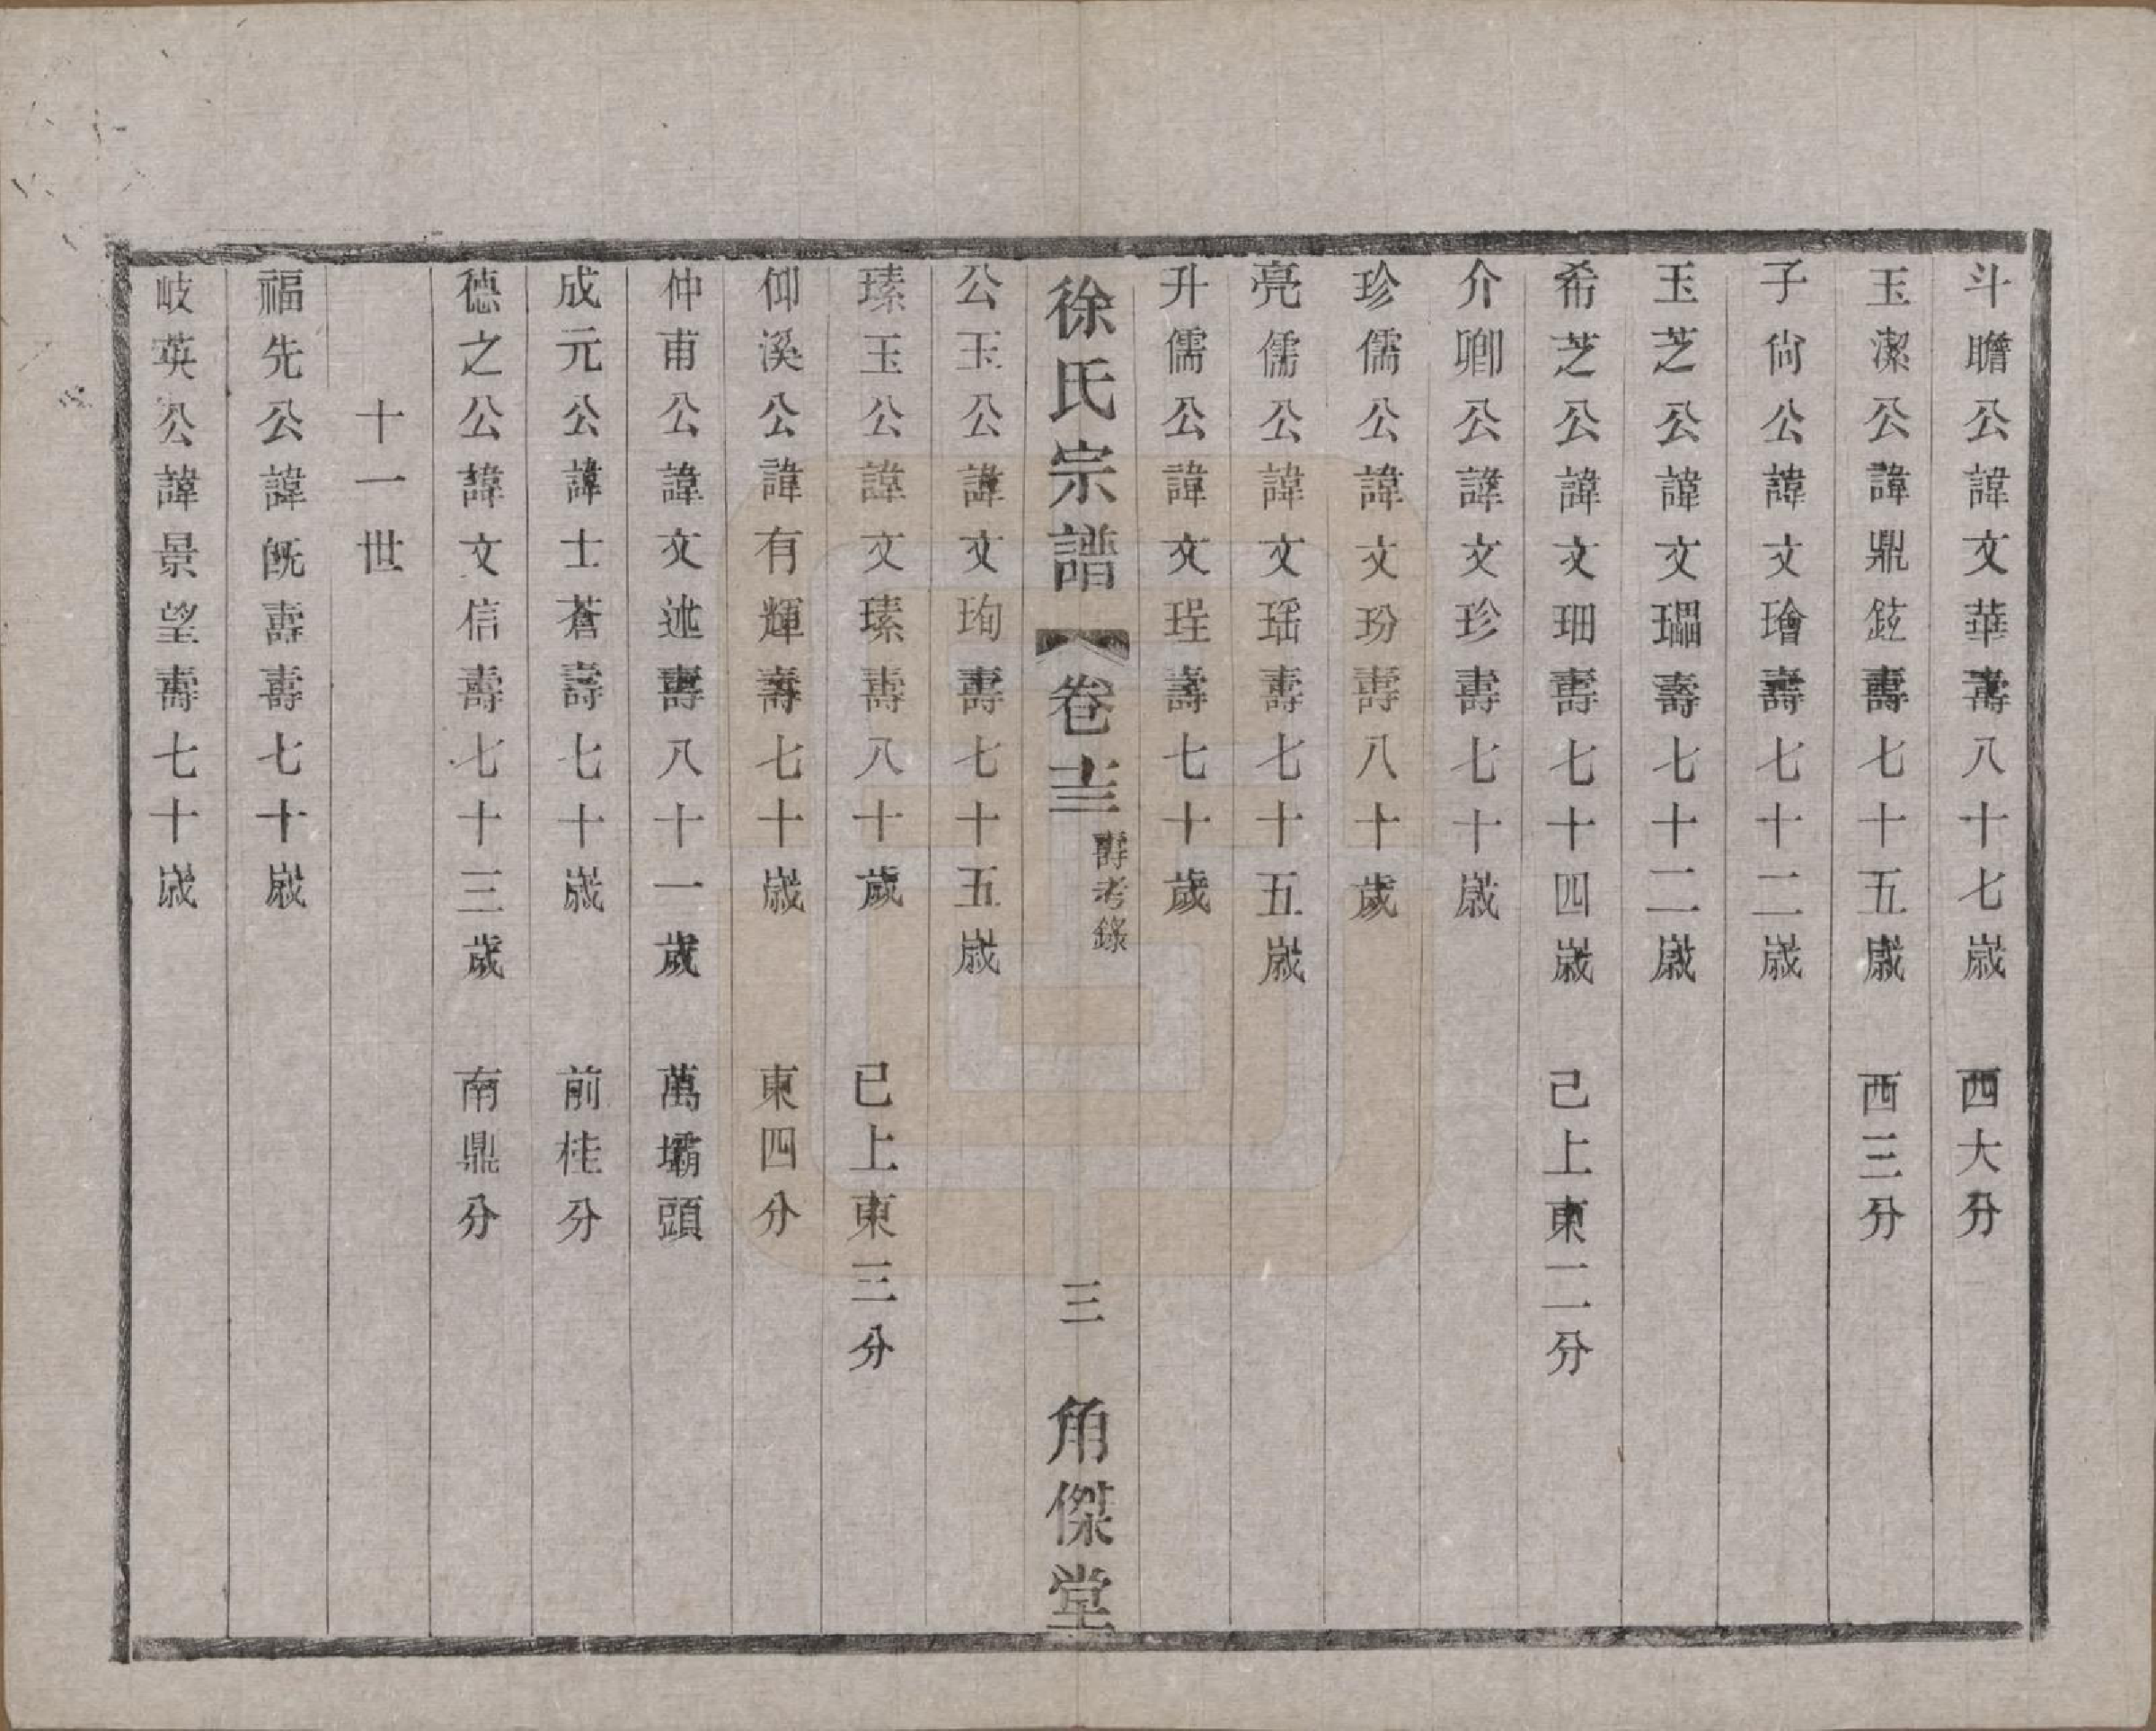 斗瞻公諱文華壽八十七歲　西大分
玉潔公諱鼎鉉壽七十五歲　西三分
子尙公諱文璯壽七十二歲
玉芝公諱文瑥壽七十二歲
希芝公諱文珊壽七十四歲　己上東二分
介卿公諱文珍壽七十歲
珍儒公諱文玢壽八十歲
亮儒公諱文瑶壽七十五歲
升儒公諱文珵壽七十歲
徐氏宗譜　卷十三　壽考錄　三　角傑堂
公玉公諱文珣壽七十五歲
瑧玉公諱文瑧壽八十歲　已上東三分
仰溪公諱有輝壽七十歲　東四分
仲甫公諱文述壽八十一歲　萬壩頭
成元公諱士蒼壽七十歲　前桂分
德之公諱文信壽七十三歲　南鼎分
十一世
福先公諱旣壽壽七十歲
岐英公諱景望壽七十歲